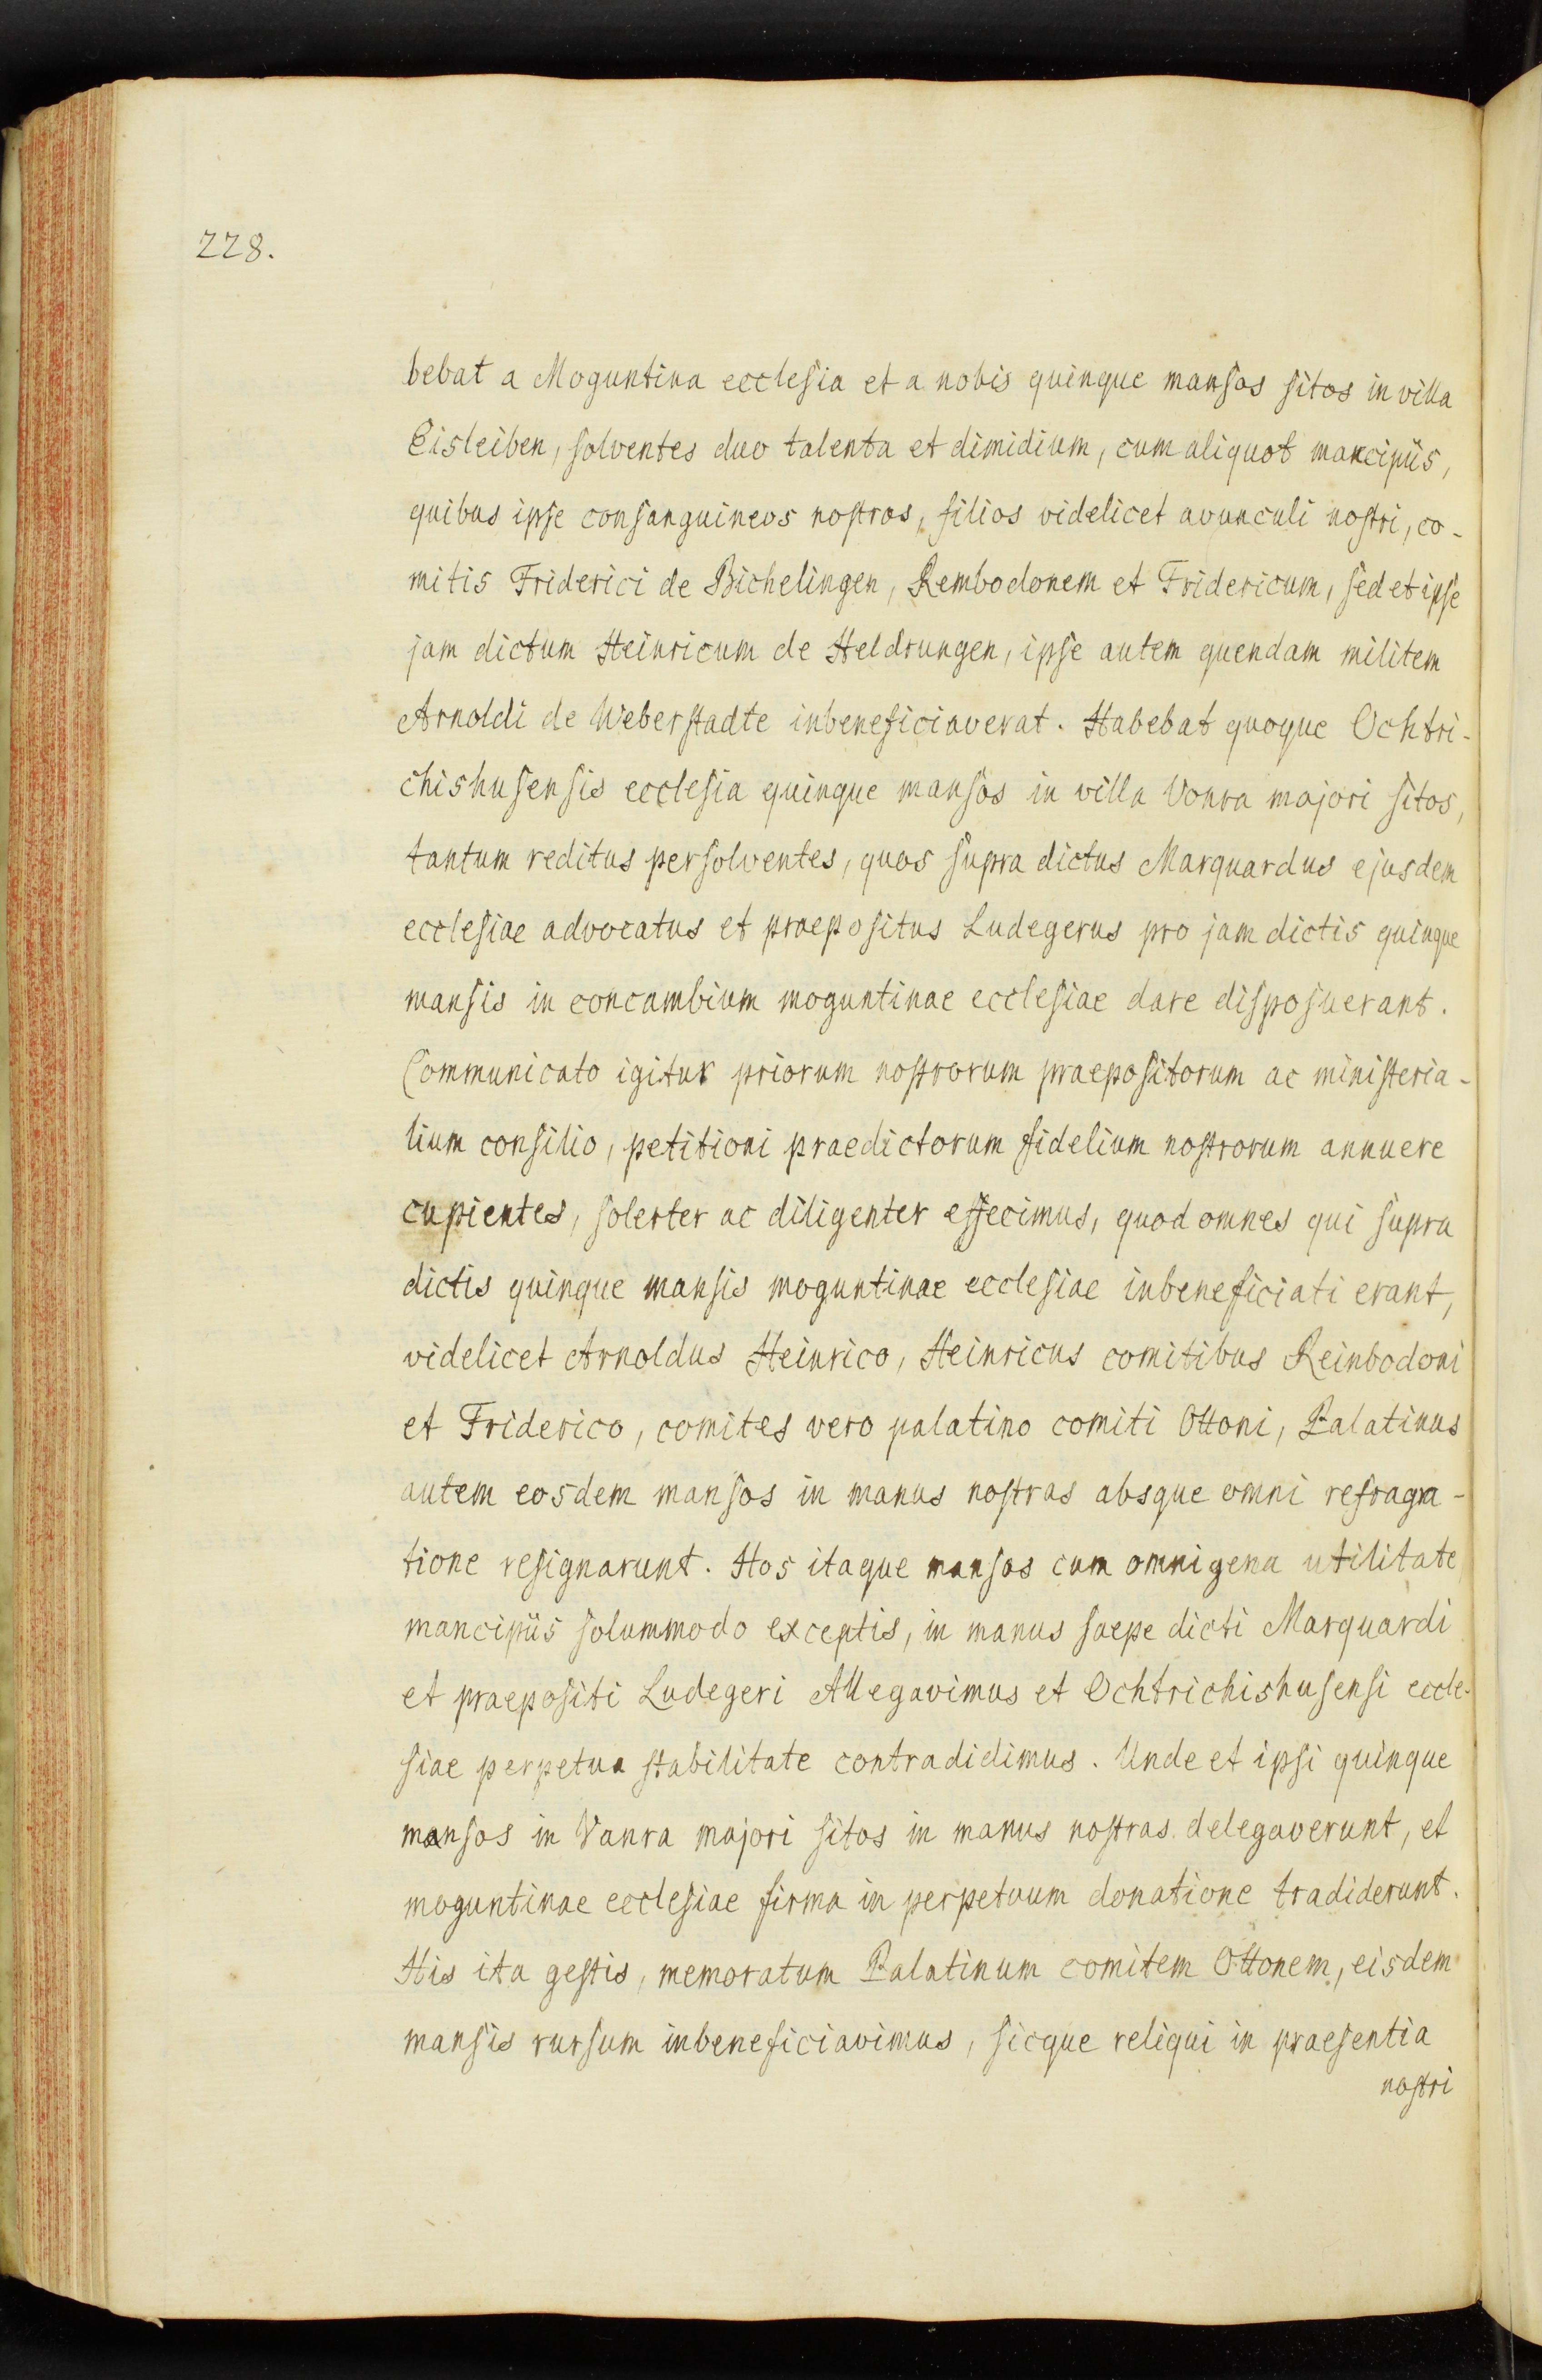 228.
bebat a Moguntina ecclesia et a nobis quinque mansos sitos in villa
Eisleiben, solventes duo talenta et dimidium, cum aliquot mancipiis,
quibus ipse consanguineos nostros, filios videlicet avunculi nostri, co-
mitis Friderici de Bichelingen, Rembodonem et Fridericum, sed et ipse
jam dictum Heinricum de Heldrungen, ipse autem quendam militem
Arnoldi de Weberstadte inbeneficiaverat. Habebat quoque Ochtri-
chishusensis ecclesia quinque mansos in villa Vonra majori sitos,
tantum reditus persolventes, quos supra dictus Marquardus ejusdem
ecclesiae advocatus et praepositus Ludegerus pro jam dictis quinque
mansis in concambium moguntinae ecclesiae dare disposuerant.
Communicato igitur priorum nostrorum praepositorum ac ministeria-
lium consilio, petitioni praedictorum fidelium nostrorum annuere
cupientes, solerter ac diligenter effecimus, quod omnes qui supra
dictis quinque mansis moguntinae ecclesiae inbeneficiati erant,
videlicet Arnoldus Heinrico, Heinricus comitibus Reinbodoni
et Friderico, comites vero palatino comiti Ottoni, Palatinus
autem eosdem mansos in manus nostras absque omni refraga-
tione resignarunt. Hos itaque mansos cum omnigena utilitate
mancipiis solummodo exceptis, in manus saepe dicti Marquardi
et praepositi Ludegeri Allegavimus et Ochtrichishusensi eccle-
siae perpetua stabilitate contradidimus. Unde et ipsi quinque
mansos in Vanra majori sitos in manus nostras delegaverunt, et
moguntinae ecclesiae firma in perpetuum donatione tradiderunt.
His ita gestis, memoratum Palatinum comitem Ottonem, eisdem
mansis rursum inbeneficiavimus, sicque reliqui in praesentia
nostri